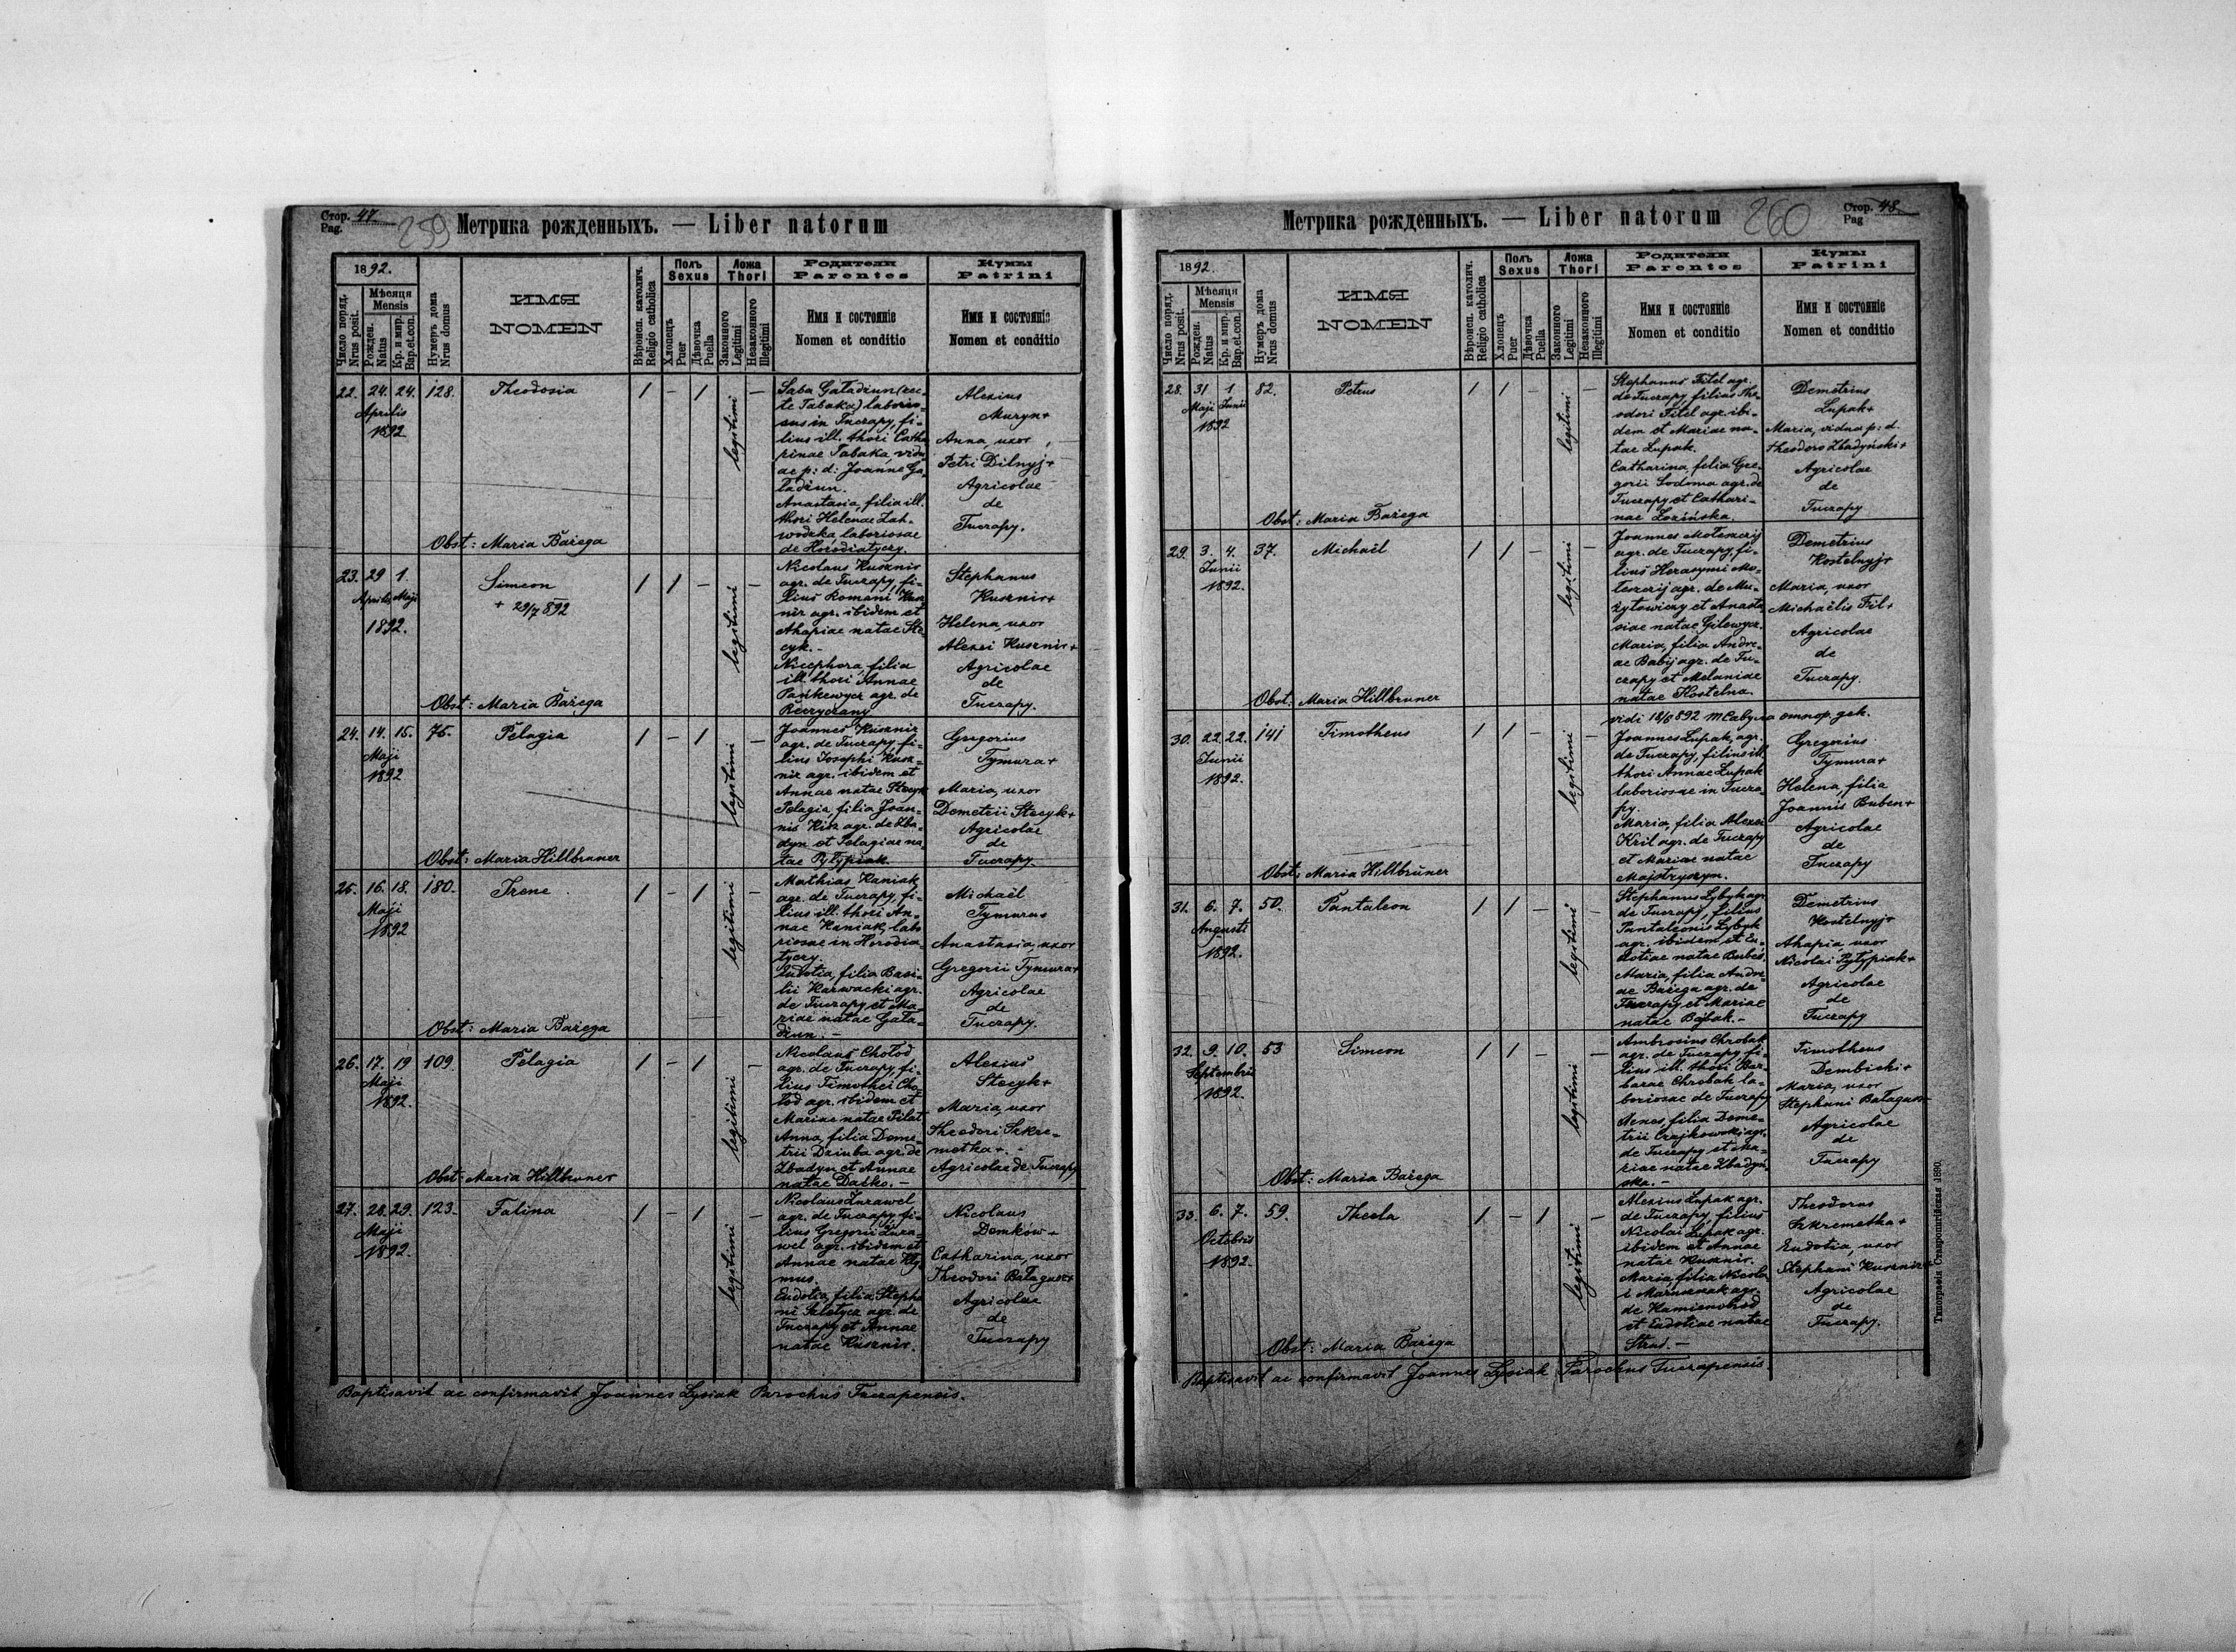 Стор. 47.
Pag.
259
Метрика рожденныхъ. — Liber natorum
1892.
Число поряд.
Nrus posit.
Мѣсяця
Mensis
Рожден.
Natus
Кр. и мир.
Bap.et.con.
Нумеръ дома
Nrus domus
ИМЯ
NOMEN
Вѣроисп. католич.
Religio catholica
Полъ
Sexus
Хлопець
Puer
Дѣвочка
Puella
Ложа
Thori
Законного
Legitimi
Незаконного
Illegitimi
Родители
Parentes
Имя и состояніе
Nomen et conditio
Кумы
Patrini
Имя и состояніе
Nomen et conditio
22. 24. 24. 128. Theodosia / – / legitimi –
Aprilis
1892
Saba Gaładiun (rec-
te Tabaka) laborio-
sus in Tuczapy, fi-
lius ill. thori Catha
rinae Tabaka, vidu
ae p: d: Joanne Ga
ładiun.
Anastasia, filia ill.
thori Helenae Zah-
wodzka, laboriosae
de Horodiatycy.
Alexius
Muryn+
Anna, uxor
Petri Dilnyj+
Agricolae
de
Tuczapy.
Obst: Maria Bařega
23. 29 1. Simeon / / – legitimi
Aprilis Maji
1892.
+ 29/7 892
Nicolaus Kusznir
agr. de Tuczapy, fi-
lius Romani Kusz
nir agr. ibidem et
Ahapiae natae Ste
cyk.-
Nicephora, filia
ill. thori Annae
Pańkewycz agr. de
Reczyczany
Stephanus
Kusznir+
Helena uxor
Alexei Kusznir+
Agricolae
de
Tuczapy.
Obst: Maria Bařega
24. 14. 15. 75. Pelagia / – / legitimi –
Maji
1892
Joannes Kusznir
agr. de Tuczapy, fi-
lius Josephi Kusz-
nir agr. ibidem et
Annae natae Stecyk
Pelagia, filia Joan-
nis Kisz agr. de Zba-
dyn et Pelagiae na
tae Pyłypiak.
Gregorius
Tymura+
Maria, uxor
Demetrii Stecyk+
Agricolae
de
Tuczapy.
Obst: Maria Hillbruner
25. 16. 18. 180. Irene / – / legitimi –
Maji
1892
Mathias Haniak
agr. de Tuczapy, fi-
lius ill. thori An-
nae Haniak, labo
riosae in Horodia-
tycy.
Eudotia, filia Basi-
lii Karwacki agr.
de Tuczapy et Ma-
riae natae Gała-
diun. -
Michaël
Tymurus
Anastasia, uxor
Gregorii Tymura+
Agricolae
de
Tuczapy.
Obst: Maria Bařega
26. 17. 19 109. Pelagia / – / legitimi –
Maji
1892.
Nicolaus Chołod
agr. de Tuczapy, fi-
lius Timothei Cho-
łod agr. ibidem et
Mariae natae Pilat
Anna, filia Deme-
trii Dziuba agr. de
Zbadyn et Annae
natae Daśko. -
Alexius
Stecyk+
Maria, uxor
Theodori Szkre-
metka+.
Agricolae de Tuczapy
Obst: Maria Hillbruner
27. 28. 29. 123. Falina / – / legitimi –
Maji
1892.
Nicolaus Żurawel
agr. de Tuczapy fi-
lius Gregorii Żura-
wel agr. ibidem et
Annae natae Kły
mus.
Eudotia, filia Stepha
ni Szlotycz agr. de
Tuczapy et Annae
natae Kusznir.
Nicolaus
Domków+
Catharina, uxor
Theodori Bałagusz+
Agricolae
de
Tuczapy
Baptisavit ac confirmavit Joannes Łysiak Parochus Tuczapensis.
260
Стор. 48.
Pag
Метрика рожденныхъ. — Liber natorum
1892.
Число поряд.
Nrus posit.
Мѣсяця
Mensis
Рожден.
Natus
Кр. и мир.
Bap.et.con.
Нумеръ дома
Nrus domus
ИМЯ
NOMEN
Вѣроисп. католич.
Religio catholica
Полъ
Sexus
Хлопецъ
Puer
Дѣвочка
Puella
Ложа
Thori
Законного
Legitimi
Незаконного
Illegitimi
Родители
Parentes
Имя и состояніе
Nomen et conditio
Кумы
Patrini
Имя и состояніе
Nomen et conditio
28. 31 1 82. Petrus / / – legitimi –
Maji Junii
1892
Stephanus Fitel agr.
de Tuczapy, filius The
odori Fitel agr. ibi-
dem et Mariae na-
tae Łupak.
Catharina, filia Gre-
gorii Sodoma agr. de
Tuczapy et Cathari-
nae Łozińska.
Demetrius
Łupak+
Maria, vidua p: d.
Theodoro Zbadyński+
Agricolae
de
Tuczapy
Obst: Maria Bařega
29. 3. 4. 37. Michaël / / – legitimi –
Junii
1892.
Joannes Moteszczij
agr. de Tuczapy, fi-
lius Herasymi Mo-
teszczij agr. de Mu-
żyłowiczy et Anasta
siae natae Gilewycz.
Maria, filia Andre-
ae Babij agr. de Tu-
czapy et Melaniae
natae Kostelna.
Demetrius
Kostelnyj+
Maria, uxor
Michaëlis Fil+
Agricolae
de
Tuczapy.
Obst: Maria Hillbruner
vidi 18/6 892
30. 22. 22. 141 Timotheus / / – legitimi –
Junii
1892.
Joannes Łupak, agr.
de Tuczapy, filius ill.
thori Annae Łupak
laboriosae in Tucza-
py.
Maria, filia Alexei
Kril agr. de Tuczapy
et Mariae natae
Majstryszyn.
Gregorius
Tymura+
Helena, filia
Joannis Buben+
Agricolae
de
Tuczapy
Obst: Maria Hillbrüner
31. 6. 7. 50. Pantaleon / / – legitimi –
Augusti
1892.
Stephanus Łybyk agr.
de Tuczapy, filius
Pantaleonis Łybyk
agr. ibidem et Eu-
dotiae natae Bubes.
Maria, filia Andre-
ae Bařega agr. de
Tuczapy et Mariae
natae Babak. -
Demetrius
Kostelnyj+
Ahapia, uxor
Nicolai Pyłypiak+
Agricolae
de
Tuczapy
32. 9. 10. 53 Simeon / / – legitimi –
Septembris
1892.
Ambrosius Chrobak
agr. de Tuczapy, fi-
lius ill. thori Bar-
barae Chrobak la-
boriosae de Tuczapy
Agnes, filia Deme-
trii Czajkowski agr.
de Tuczapy et Ma-
riae natae Zbadyń-
ska. -
Timotheus
Dembicki+
Maria, uxor
Stephani Bałagusz+
Agricolae
de
Tuczapy
Obst: Maria Bařega
33. 6. 7. 59. Thecla / – / legitimi –
Octobris
1892.
Alexius Łupak agr.
de Tuczapy, filius
Nicolai Łupak agr.
ibidem et Annae
natae Kusznir.
Maria filia Nicola
i Maruszczak agr.
de Kamienobrod
et Eudotiae natae
Strus. -
Theodorus
Szkremetka+
Eudotia, uxor
Stephani Kusznir+
Agricolae
de
Tuczapy.
Obst: Maria Bařega
Baptisavit ac confirmavit Joannes Łysiak Parochus Tuczapensis.
Типографія Ставропигійская 1890.